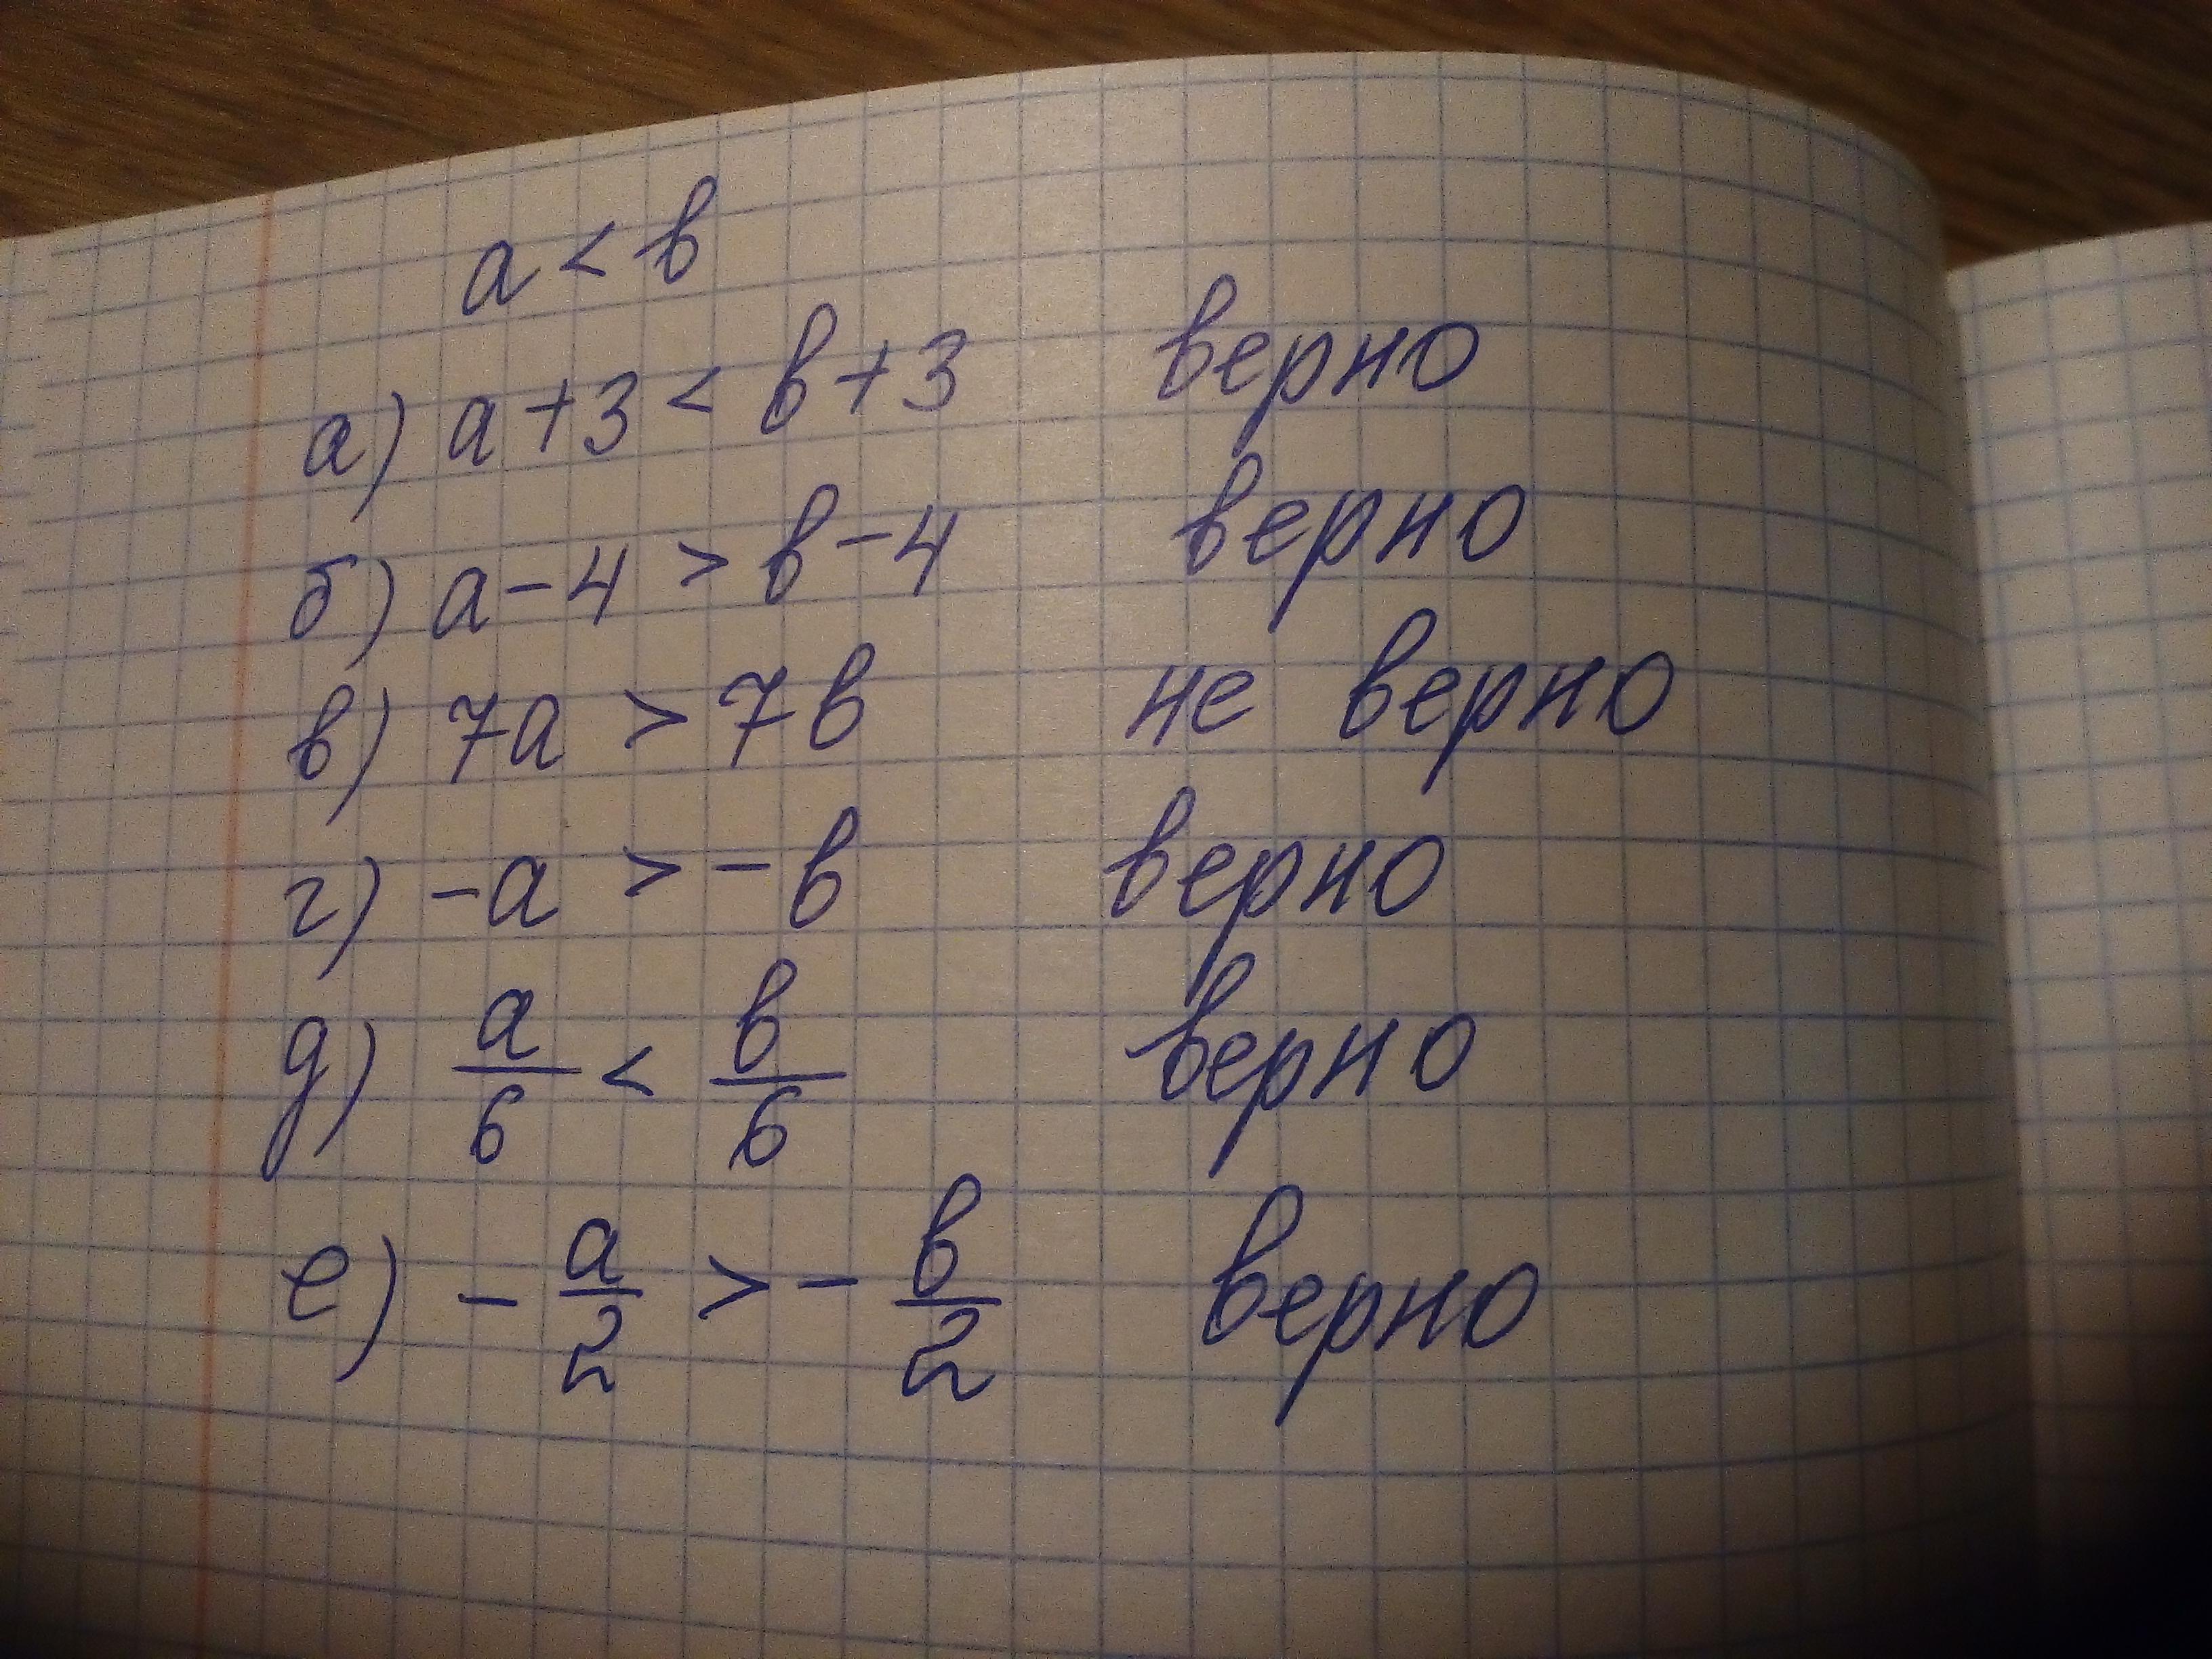 а < в
а) а+3 < в+3 верно
б) а-4 > в-4 верно
в) 7а > 7в не верно
г) -а > -в верно
д) а/6 < в/6 верно
е) - а/2 > - в/2 верно